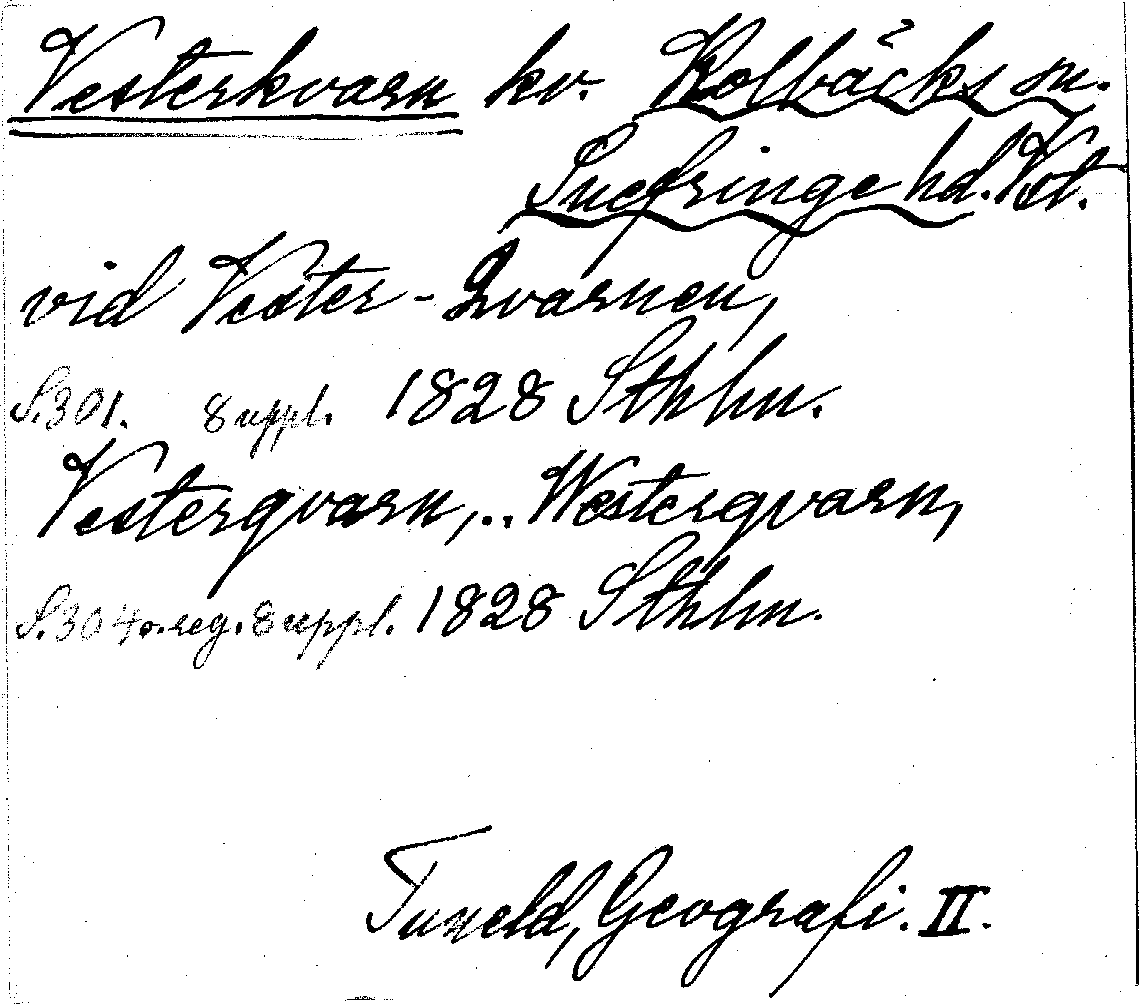 Vesterkvarn kv. Kolbäcks sn.
Snefringe hd. Vst.
vid Vester-Qvarnen,
S.301. 8 uppl. 1828 Sthlm.
Vesterqvarn,.. Westerqvarn,
S.304 o. reg. 8 uppl. 1828 Sthlm.
Tuneld, Geografi. II.